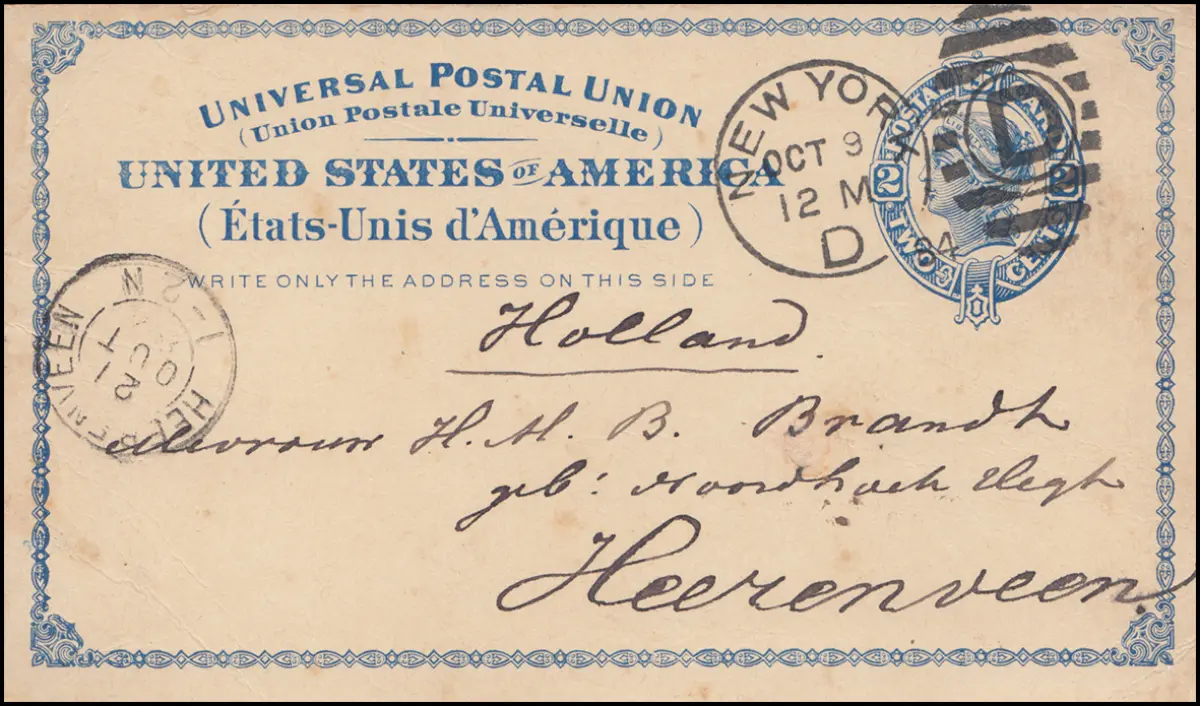 UNIVERSAL POSTAL UNION
(Union Postale Universelle)
UNITED STATES OF AMERICA
(États-Unis d'Amérique)
WRITE ONLY THE ADDRESS ON THIS SIDE
NEW YORK
OCT 9
12 M
D
94
L
POSTAL CARD
2 2
TWO CENTS
HEERENVEEN
21
OCT
1-2 N
Holland.
Mevrouw H. M. B. Brandt
geb: Noordhoek Hegt
Heerenveen.